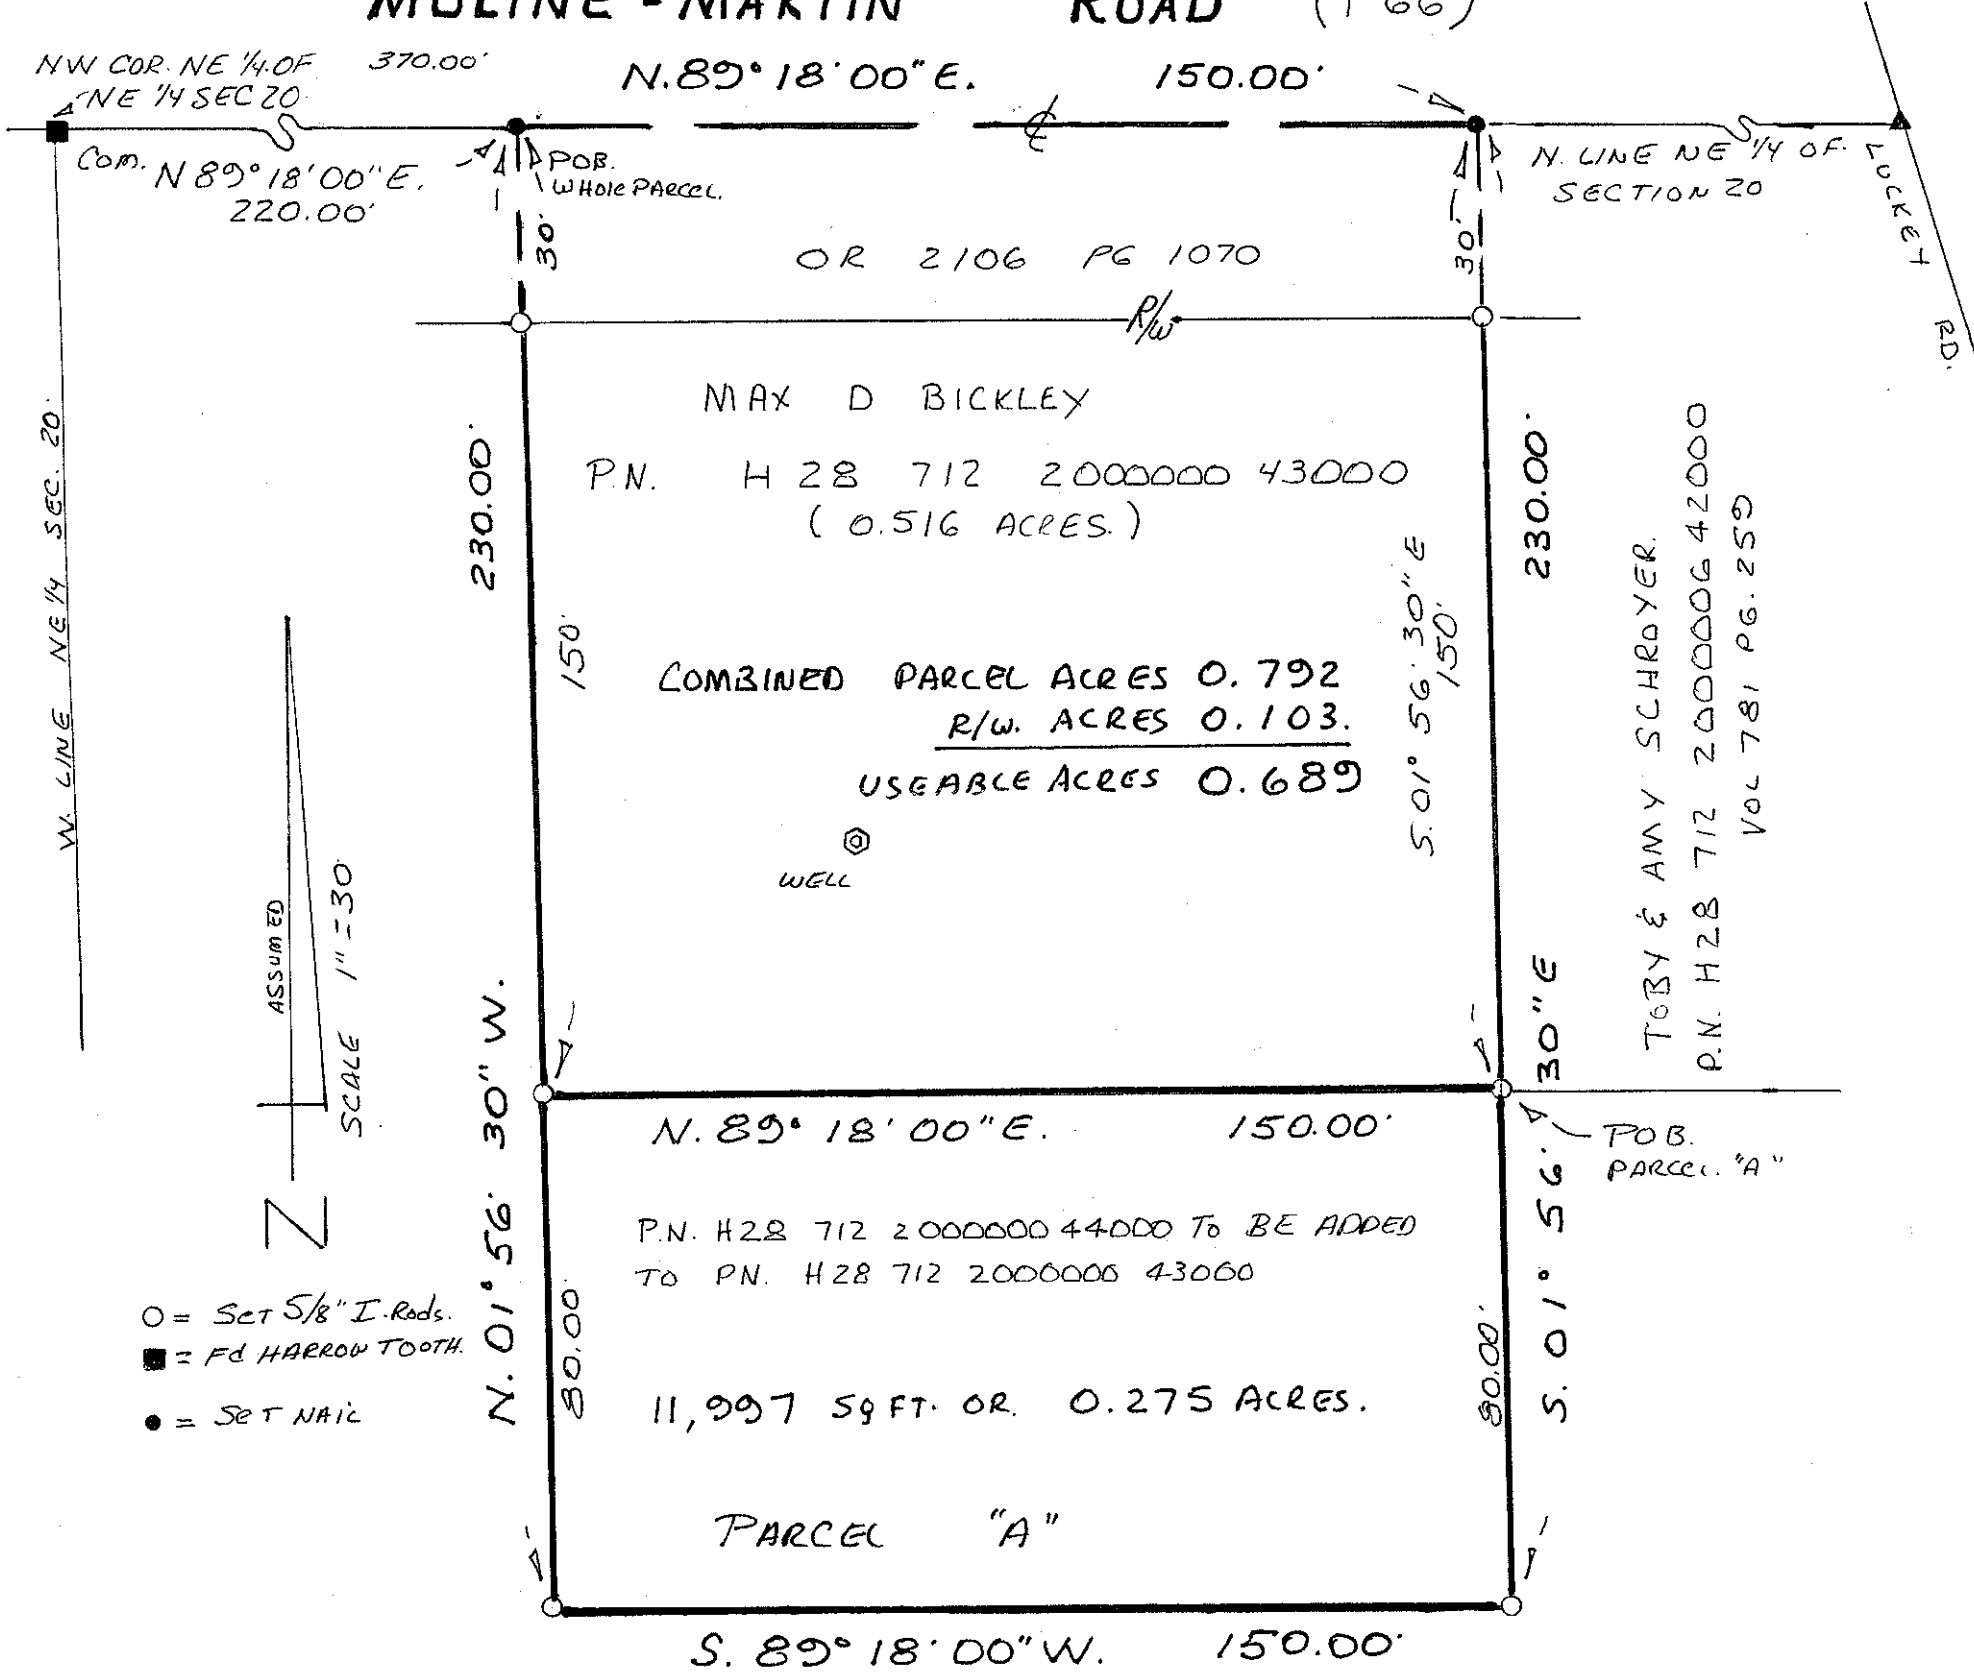 MOLINE - MARTIN ROAD (T 66)
NW COR. NE 1/4 OF 370.00'
NE 1/4 SEC 20
N. 89° 18' 00" E. 150.00'
COM. N 89° 18' 00" E.
220.00'
POB.
WHOLE PARCEL.
N. LINE NE 1/4 OF.
SECTION 20
LUCKEY RD.
30'
30'
OR 2106 PG 1070
R/W
MAX D BICKLEY
P.N. H 28 712 2000000 43000
( 0.516 ACRES. )
230.00'
230.00'
150'
S. 01° 56' 30" E
150'
COMBINED PARCEL ACRES 0.792
R/W. ACRES 0.103.
USEABLE ACRES 0.689
WELL
W. LINE NE 1/4 SEC. 20.
TOBY & AMY SCHROYER.
P.N. H28 712 2000000 42000
VOL 781 PG. 259
ASSUMED
SCALE 1" = 30'
N
N. 01° 56' 30" W.
S. 01° 56' 30" E
N. 89° 18' 00" E. 150.00'
POB.
PARCEL. "A"
P.N. H28 712 2000000 44000 TO BE ADDED
TO PN. H28 712 2000000 43000
○ = SET 5/8" I. Rods.
■ = Fd HARROW TOOTH.
● = SET NAIL
80.00'
80.00'
11,997 SQ FT. OR. 0.275 ACRES.
PARCEL "A"
S. 89° 18' 00" W. 150.00'